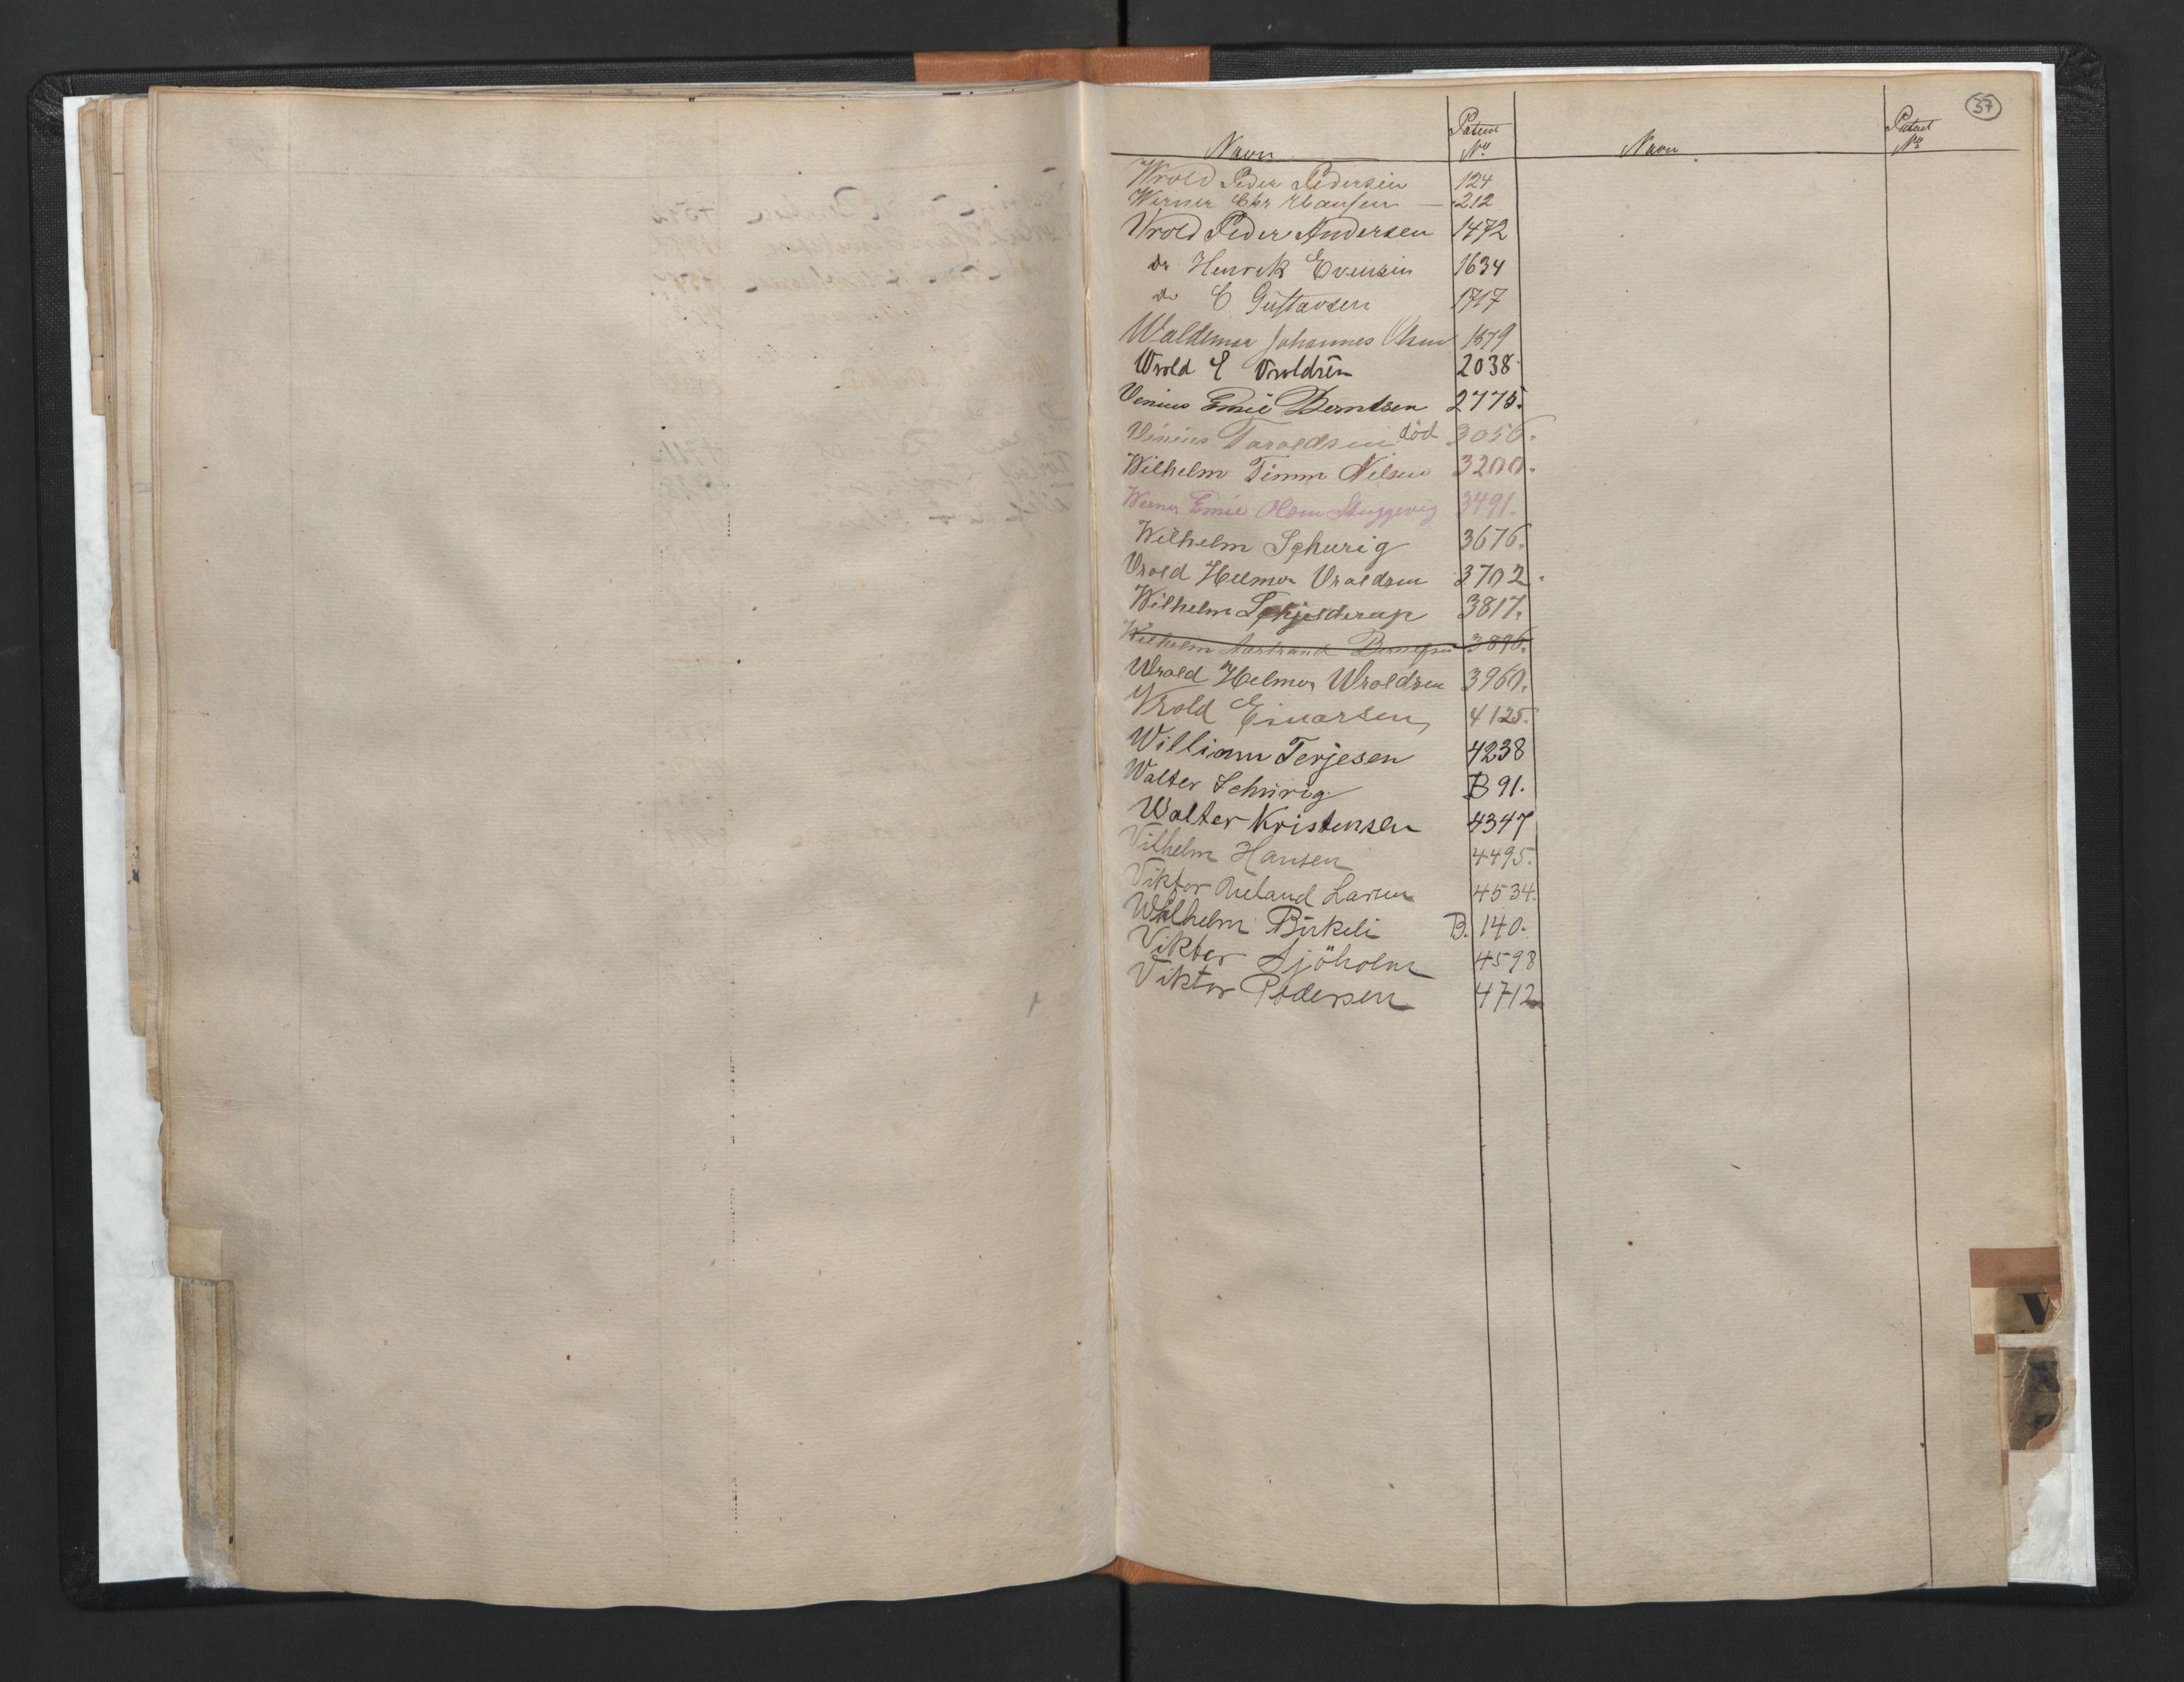 37
Navn Patent No Navn Patent No
Wrold Peder Pedersen 124
Werner Chr Clausen — 212
Vrold Peder Andersen 1472
do Henrek Evensen 1634
do C Gustavsen 1717
Waldemar Johannes Olsen 1879
Wrold E Vroldsen 2038
Venius Emil Berntsen 2775.
Venius Taraldsen död 3056.
Wilhelm Timm Nilsen 3200.
Werner Emil Olsen Stuggevig 3491.
Wilhelm Schurig 3676.
Vrold Helmer Vraldsen 3702.
Wilhelm Schjelderup 3817.
Wilhelm 3896.
Wrold Helmer Wroldsen 3960.
Vrold Einarsen, 4125.
William Terjesen 4238
Walter Schurig. B 91.
Walter Kristensen 4347
Vilhelm Hansen 4495.
Viktor Larsen 4534.
Wilhelm Birkeli B. 140.
Viktor Sjöholm 4598
Viktor Pedersen 4712
V